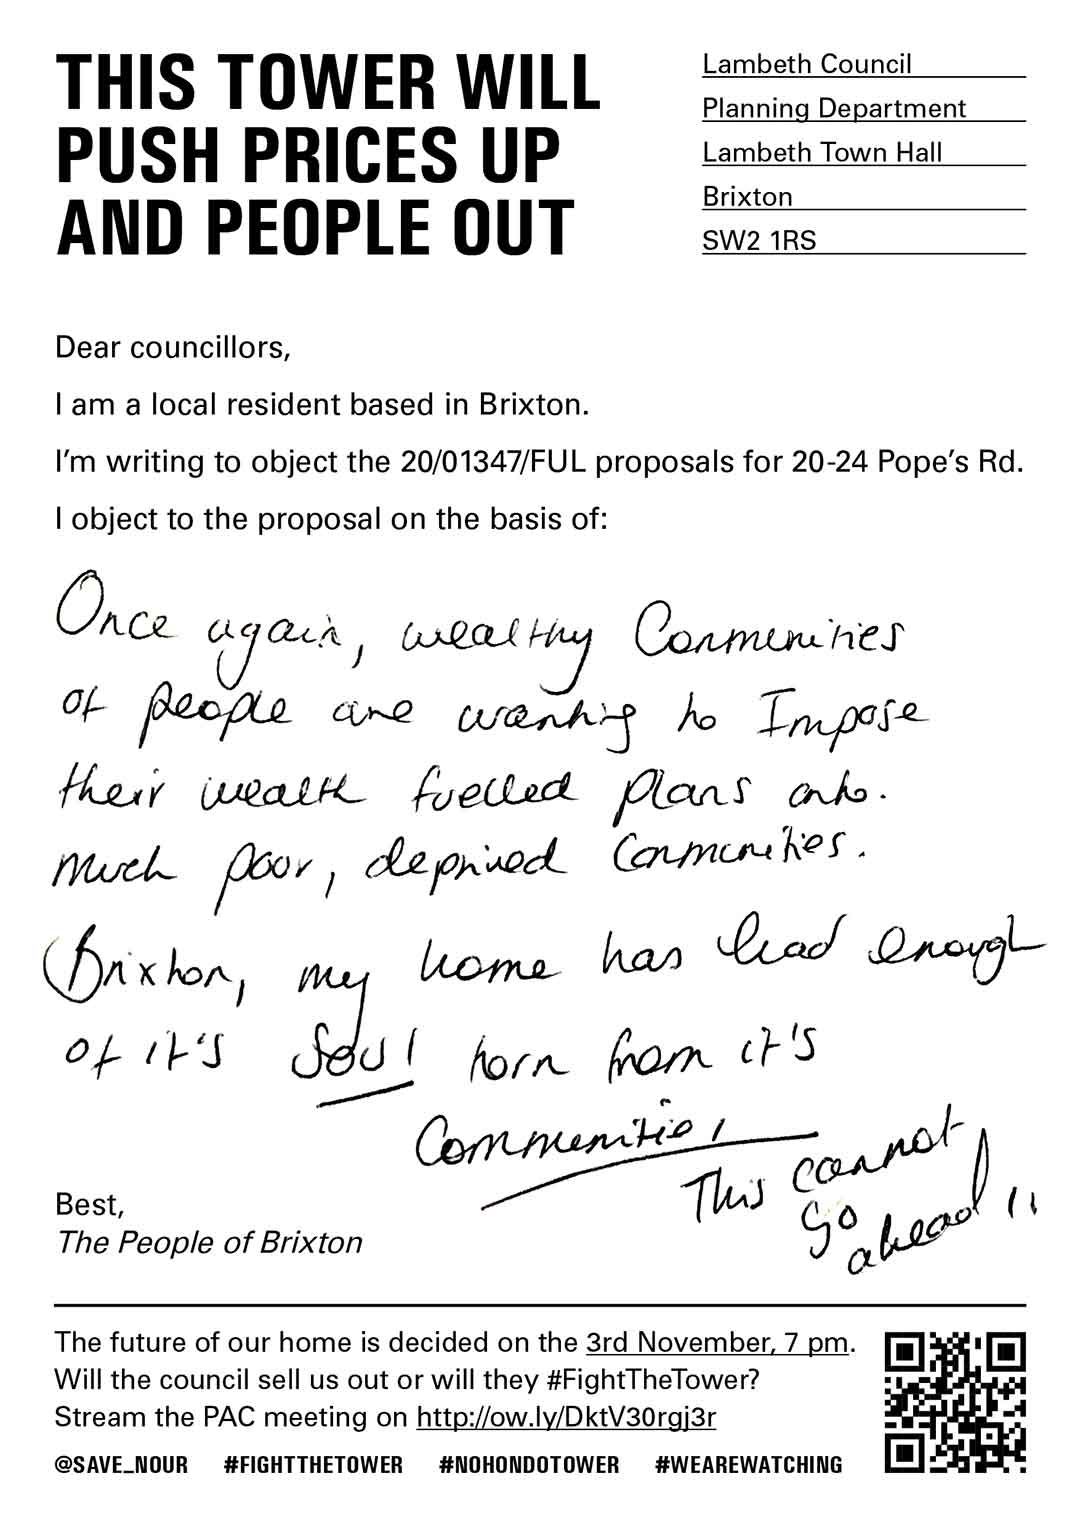 THIS TOWER WILL
PUSH PRICES UP
AND PEOPLE OUT
Lambeth Council
Planning Department
Lambeth Town Hall
Brixton
SW2 1RS
Dear councillors,
I am a local resident based in Brixton.
I'm writing to object the 20/01347/FUL proposals for 20-24 Pope's Rd.
I object to the proposal on the basis of:
Once again, wealthy Communities
of people are wanting to Impose
their wealth fuelled plans onto.
much poor, deprived Communities.
Brixton, my home has had enough
of it's Soul torn from it's
Communities,
This cannot
go
ahead !!
Best,
The People of Brixton
The future of our home is decided on the 3rd November, 7 pm.
Will the council sell us out or will they #FightTheTower?
Stream the PAC meeting on http://ow.ly/DktV30rgj3r
@SAVE_NOUR #FIGHTTHETOWER #NOHONDOTOWER #WEAREWATCHING